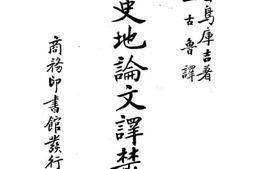 鳥庫吉著
古魯譯
史地論文譯叢
商務印書館發行